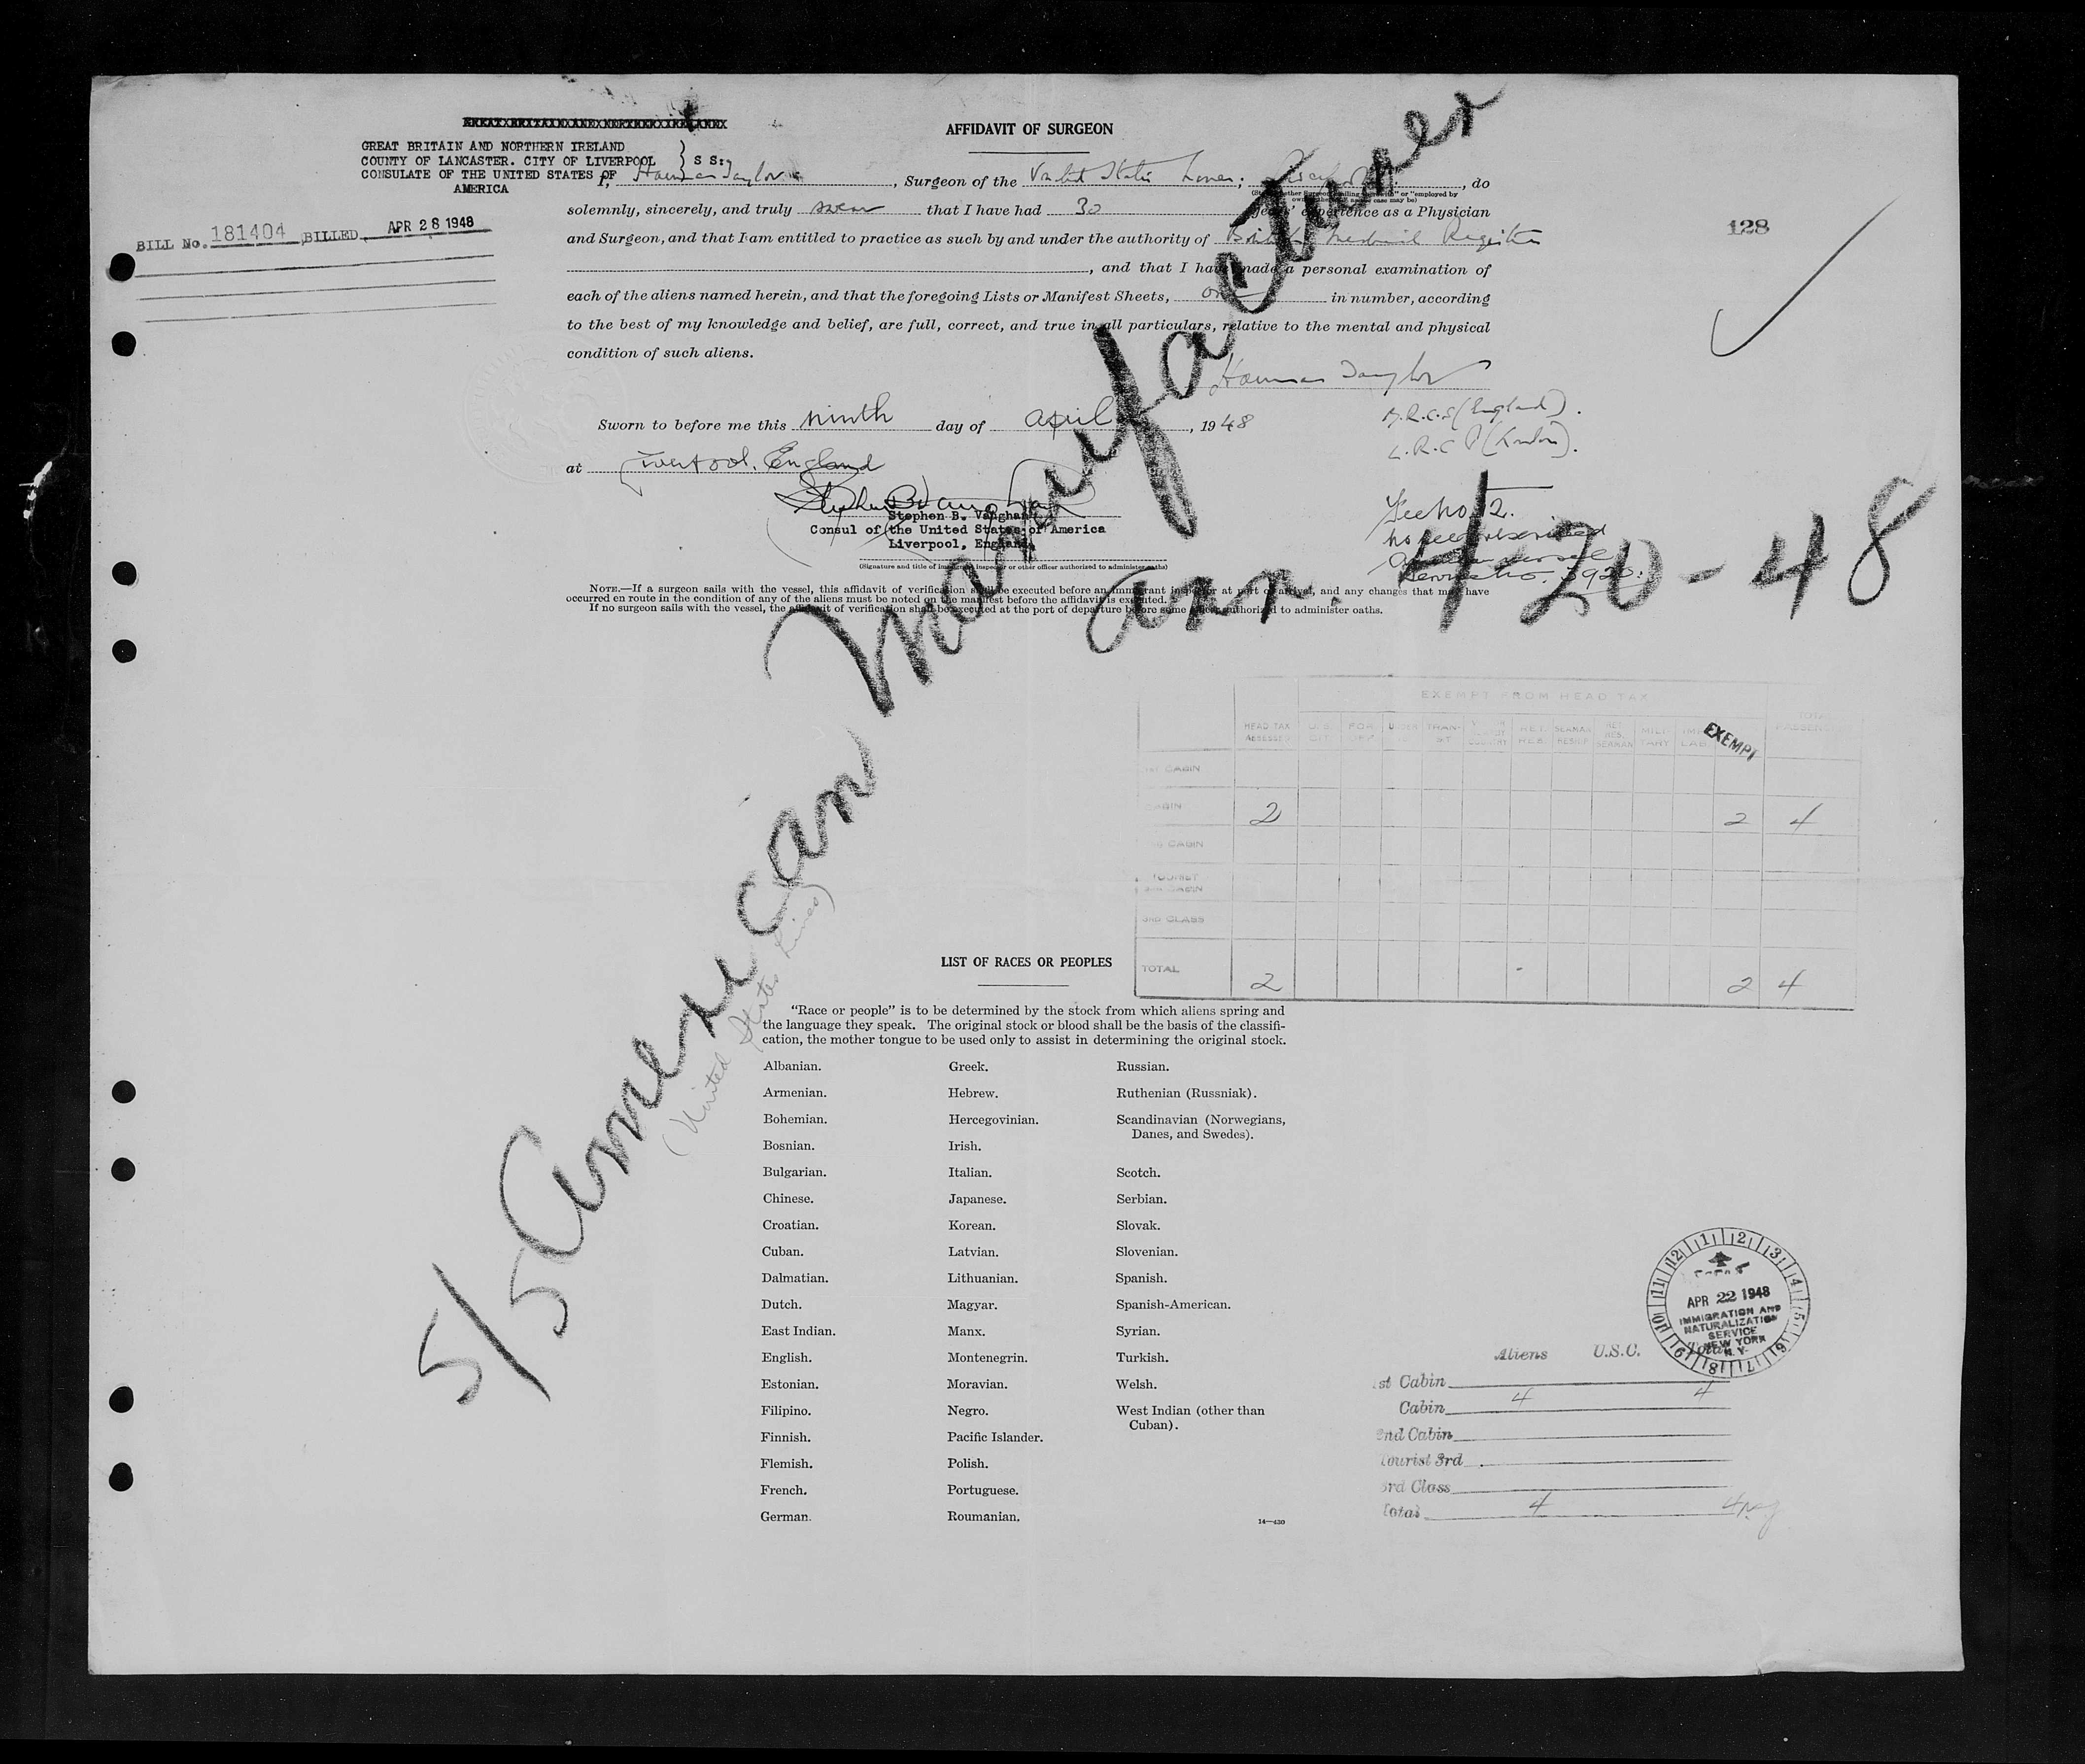 AFFIDAVIT OF SURGEON
GREAT BRITAIN AND NORTHERN IRELAND
COUNTY OF LANCASTER. CITY OF LIVERPOOL } S S:
CONSULATE OF THE UNITED STATES OF
AMERICA
I, Taylor, Surgeon of the United States Lines; , do
solemnly, sincerely, and truly swear that I have had 30 years' experience as a Physician
and Surgeon, and that I am entitled to practice as such by and under the authority of British Medical Register
, and that I have made a personal examination of
each of the aliens named herein, and that the foregoing Lists or Manifest Sheets, one in number, according
to the best of my knowledge and belief, are full, correct, and true in all particulars, relative to the mental and physical
condition of such aliens.
BILL No. 181404 BILLED APR 28 1948
128
Taylor
M.R.C.S (England).
L.R.C.P (London).
Sworn to before me this ninth day of april, 1948
at Liverpool, England
Stephen B. Vaughan
Stephen B. Vaughan
Consul of the United States of America
Liverpool, England
(Signature and title of immigrant inspector or other officer authorized to administer oaths)
Fee No. 12.
no fee prescribed
Service No. 3920:
NOTE.—If a surgeon sails with the vessel, this affidavit of verification shall be executed before an immigrant inspector at port of arrival, and any changes that may have
occurred en route in the condition of any of the aliens must be noted on the manifest before the affidavit is executed.
If no surgeon sails with the vessel, the affidavit of verification shall be executed at the port of departure before some officer authorized to administer oaths.
S/S American Manufacturer
(United States Lines)
arr. 4-20-48
EXEMPT FROM HEAD TAX
HEAD TAX ASSESSED
EXEMPT
CABIN 2 2 4
3RD CLASS
TOTAL 2 2 4
LIST OF RACES OR PEOPLES
"Race or people" is to be determined by the stock from which aliens spring and
the language they speak. The original stock or blood shall be the basis of the classifi-
cation, the mother tongue to be used only to assist in determining the original stock.
Albanian. Greek. Russian.
Armenian. Hebrew. Ruthenian (Russniak).
Bohemian. Hercegovinian. Scandinavian (Norwegians,
Danes, and Swedes).
Bosnian. Irish.
Bulgarian. Italian. Scotch.
Chinese. Japanese. Serbian.
Croatian. Korean. Slovak.
Cuban. Latvian. Slovenian.
Dalmatian. Lithuanian. Spanish.
Dutch. Magyar. Spanish-American.
East Indian. Manx. Syrian.
English. Montenegrin. Turkish.
Estonian. Moravian. Welsh.
Filipino. Negro. West Indian (other than
Cuban).
Finnish. Pacific Islander.
Flemish. Polish.
French. Portuguese.
German. Roumanian.
14—430
12 1 2 3 4 5 6 7 8 9 10 11
APR 22 1948
IMMIGRATION AND
NATURALIZATION
SERVICE
NEW YORK
N.Y.
Aliens U.S.C. Total
1st Cabin
Cabin 4 4
2nd Cabin
Tourist 3rd
3rd Class
Total 4 4